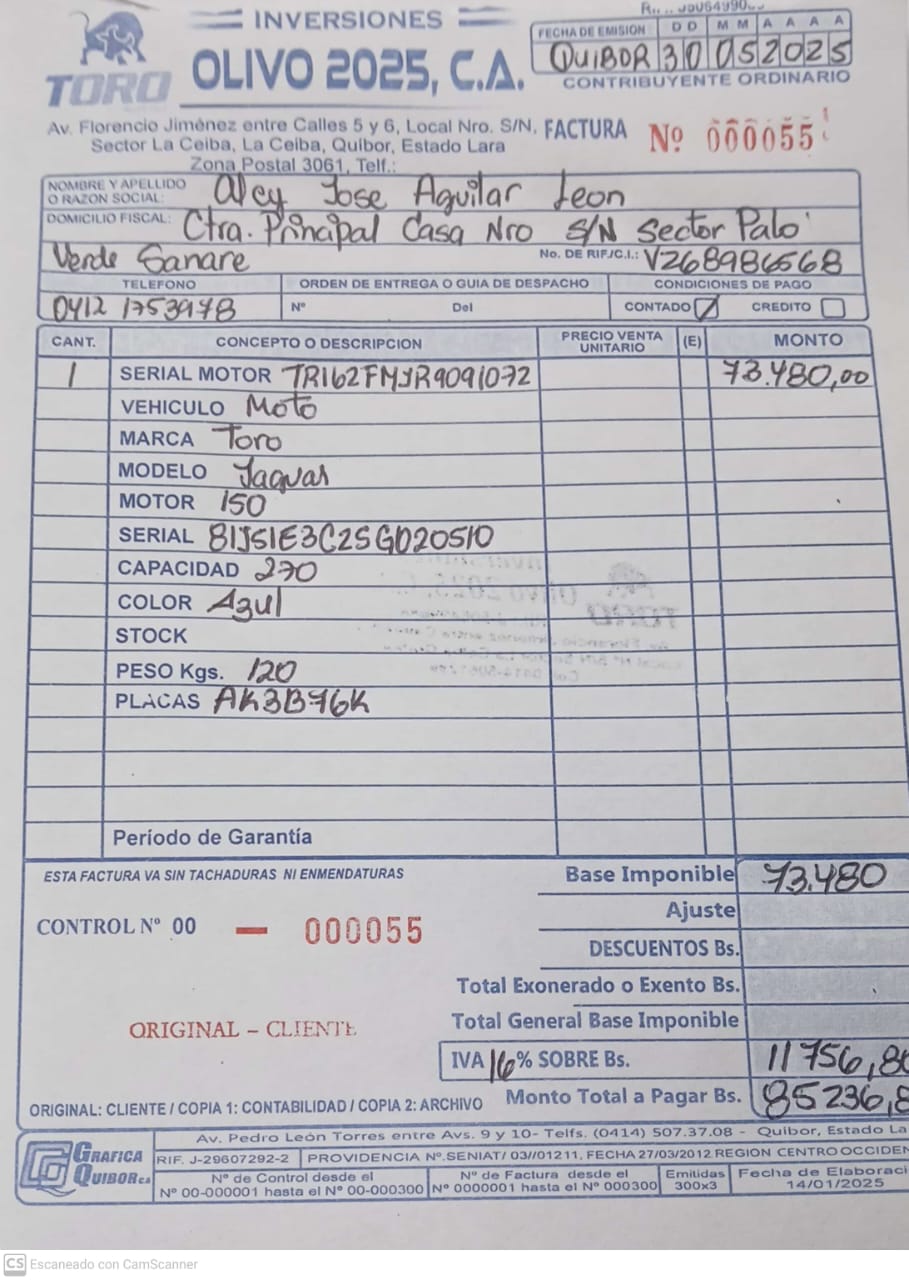 INVERSIONES
TORO OLIVO 2025, C.A.
FECHA DE EMISIÓN D D M M A A A A
QUIBOR 30 05 2025
CONTRIBUYENTE ORDINARIO
Av. Florencio Jiménez entre Calles 5 y 6, Local Nro. S/N,
Sector La Ceiba, La Ceiba, Quibor, Estado Lara
Zona Postal 3061, Telf.:
FACTURA Nº 000055
NOMBRE Y APELLIDO O RAZON SOCIAL: Aley Jose Aguilar Leon
DOMICILIO FISCAL: Ctra. Principal Casa Nro S/N Sector Palo
Verde Sanare No. DE RIF./C.I.: V268986568
TELEFONO ORDEN DE ENTREGA O GUIA DE DESPACHO CONDICIONES DE PAGO
0412 1753978 Nº Del CONTADO CREDITO
CANT. CONCEPTO O DESCRIPCION PRECIO VENTA UNITARIO (E) MONTO
1 SERIAL MOTOR TR162FMJR9091072 73.480,00
VEHICULO Moto
MARCA Toro
MODELO Jaguar
MOTOR 150
SERIAL 81JS1E3C2SGD20510
CAPACIDAD 270
COLOR Azul
STOCK
PESO Kgs. 120
PLACAS AK3B76K
Período de Garantía
ESTA FACTURA VA SIN TACHADURAS NI ENMENDATURAS
Base Imponible 73.480
Ajuste
CONTROL Nº 00 — 000055
DESCUENTOS Bs.
Total Exonerado o Exento Bs.
Total General Base Imponible
ORIGINAL – CLIENTE
IVA 16% SOBRE Bs. 11756,80
ORIGINAL: CLIENTE / COPIA 1: CONTABILIDAD / COPIA 2: ARCHIVO Monto Total a Pagar Bs. 85236,8
GRAFICA QUIBOR C.A.
Av. Pedro León Torres entre Avs. 9 y 10- Telfs. (0414) 507.37.08 - Quibor, Estado La
RIF. J-29607292-2 PROVIDENCIA Nº.SENIAT/ 03//01211, FECHA 27/03/2012 REGION CENTRO OCCIDEN
Nº de Control desde el Nº 00-000001 hasta el Nº 00-000300
Nº de Factura desde el Nº 0000001 hasta el Nº 000300
Emitidas 300x3
Fecha de Elaboraci 14/01/2025
CS Escaneado con CamScanner